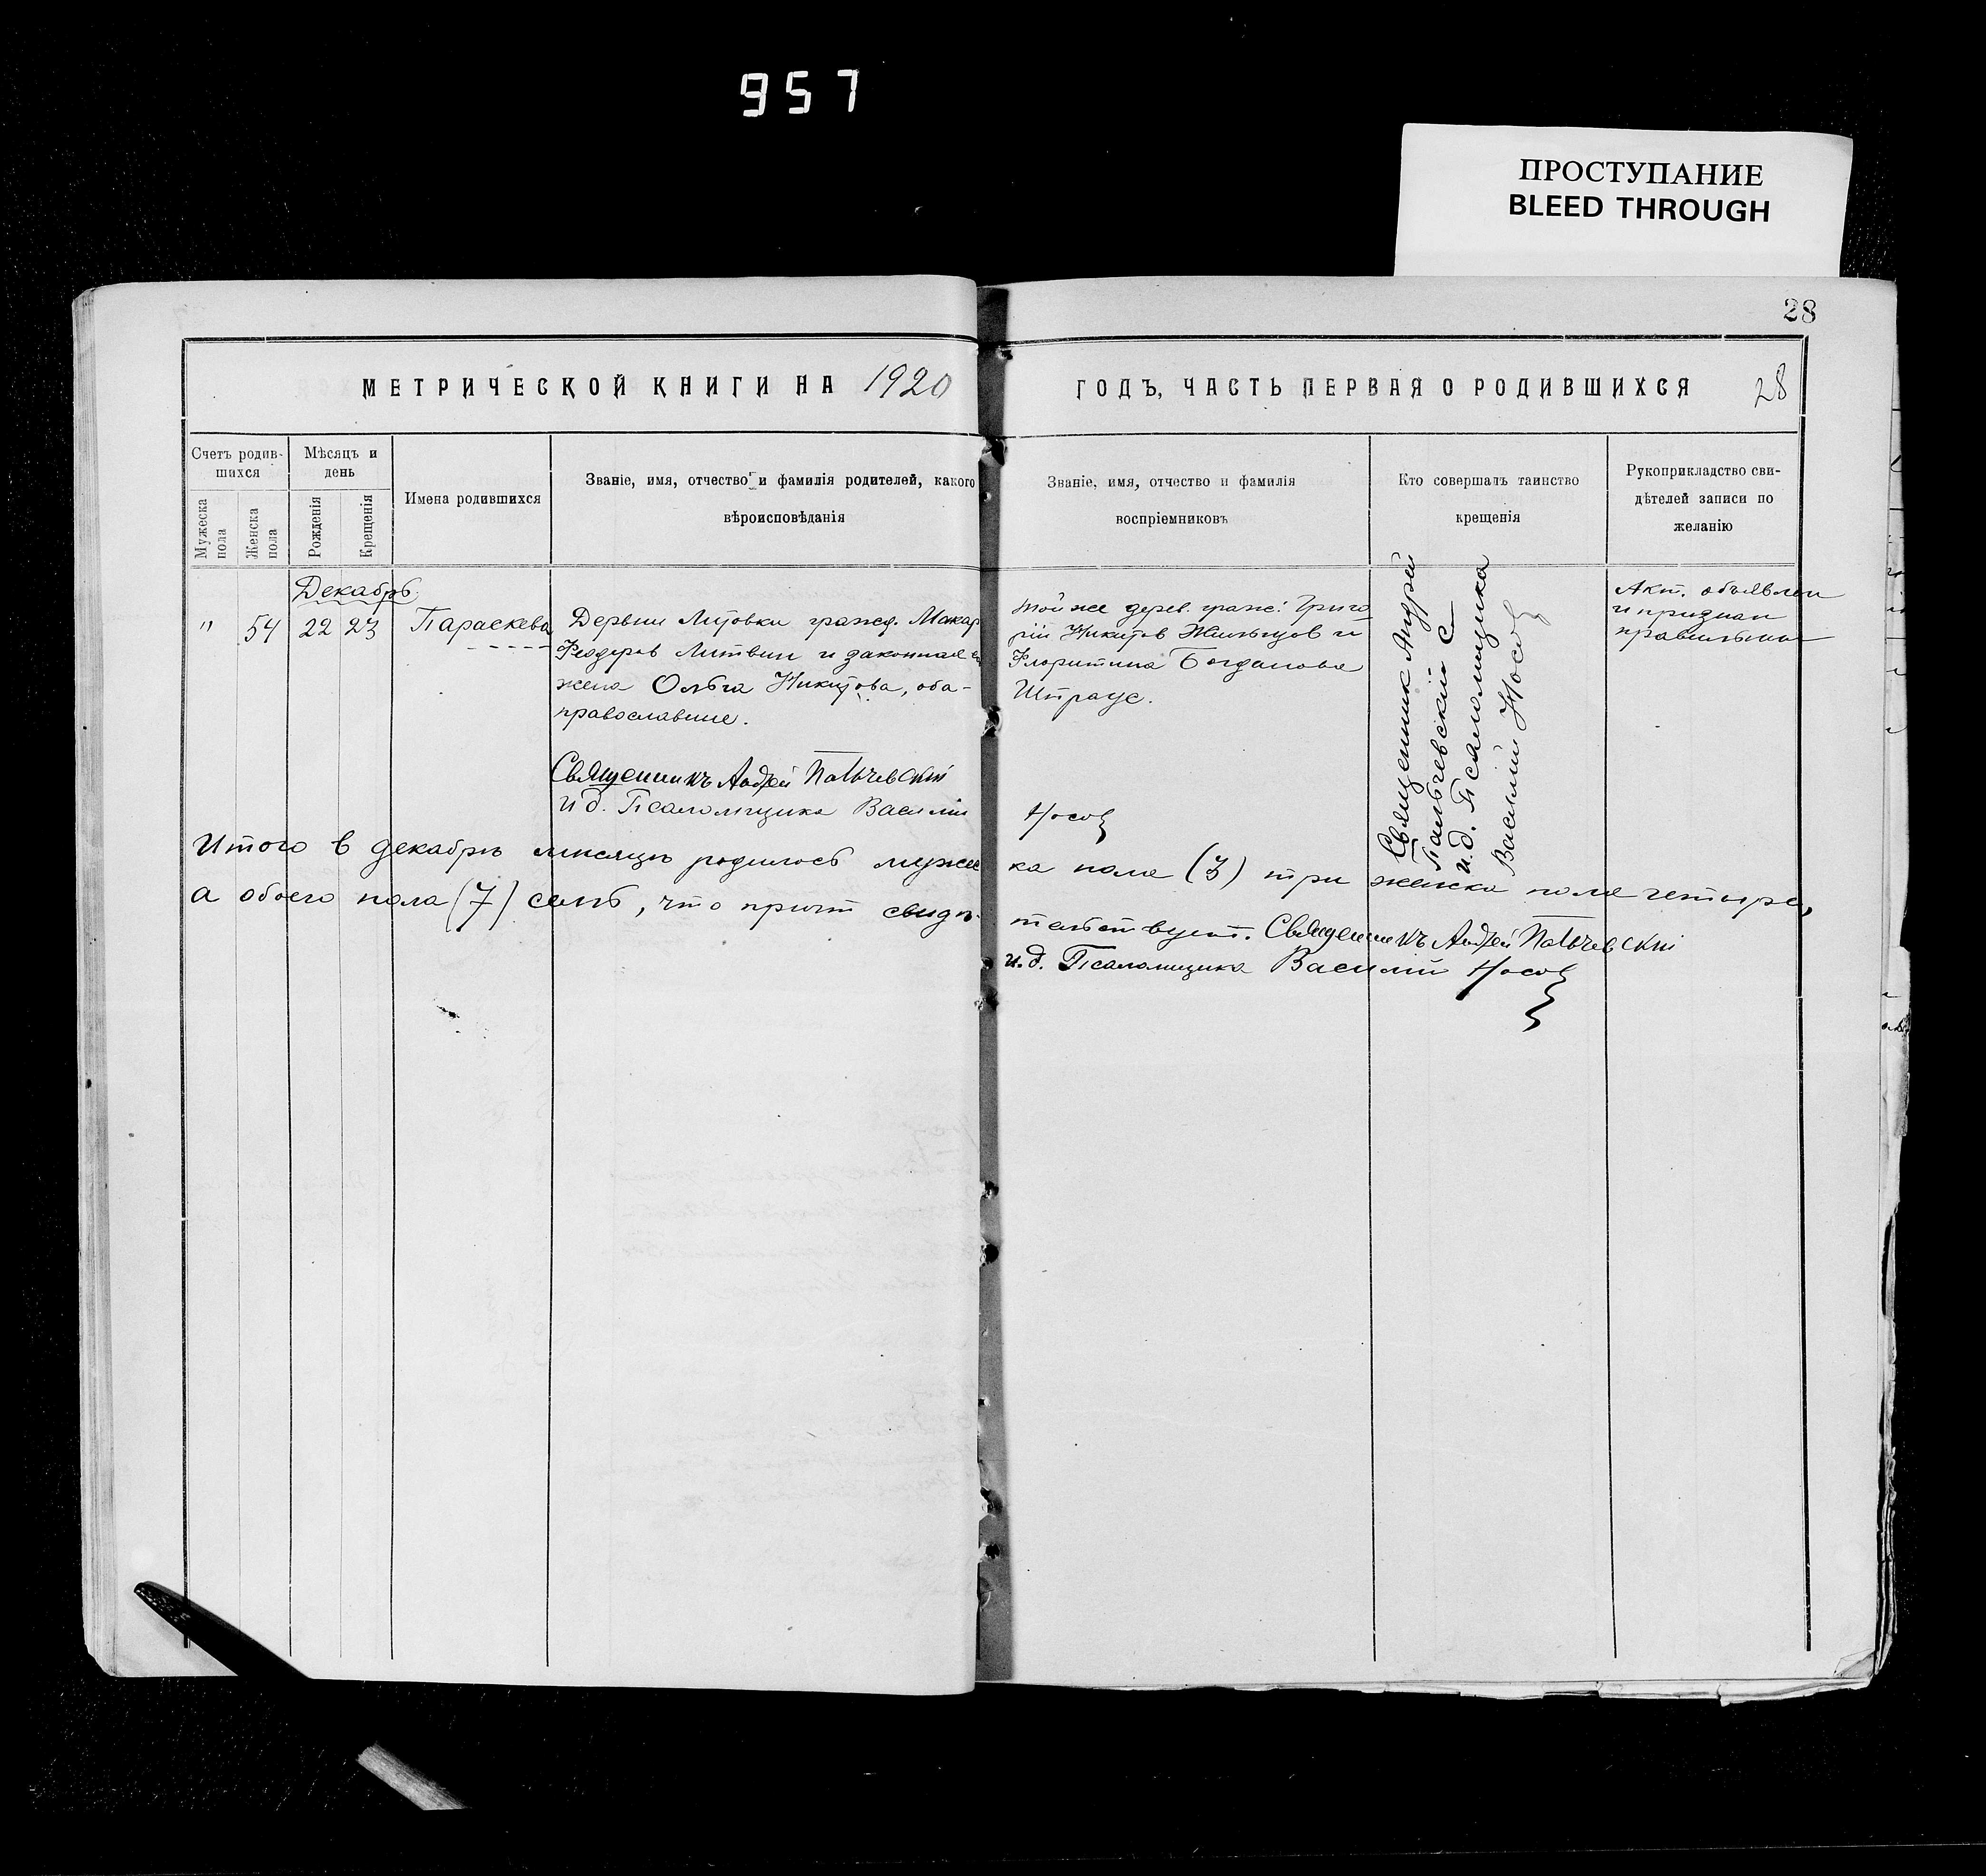 957
ПРОСТУПАНИЕ
BLEED THROUGH
28
МЕТРИЧЕСКОЙ КНИГИ НА 1920
ГОДЪ, ЧАСТЬ ПЕРВАЯ О РОДИВШИХСЯ 28
Счетъ родив-
шихся
Мужеска
пола
Женска
пола
Мѣсяцъ и
день
Рожденія
Крещенія
Имена родившихся
Званіе, имя, отчество и фамилія родителей, какого
вѣроисповѣданія
Званіе, имя, отчество и фамилія
воспріемниковъ
Кто совершалъ таинство
крещенія
Рукоприкладство сви-
дѣтелей записи по
желанію
Декабрь.
" 54 22 23 Параскева
Дервни Литовки гражд. Макар
Феодоров Литвин и законная
жена Ольга Никитова, оба-
православные.
Священникъ Андрей Пальчевскій
и д. Псаломщика Василій
Той же дерев. граж. Григо
рій Никитов Жильцов и
Флоритина Богданова
Штраус.
Носов
Священник Андрей
Пальчевский С
и.д. Псаломщика
Василий Носов
Акт. объявлен
и признан
правильным
Итого в декабрѣ мѣсяцѣ родилось мужес
ка пола (3) три женска пола четыре,
а обоего пола (7) семь, что причт свидѣ-
тельствует. Священникъ Андрей Пальчевскій
и.д. Псаломщика Василий Носов